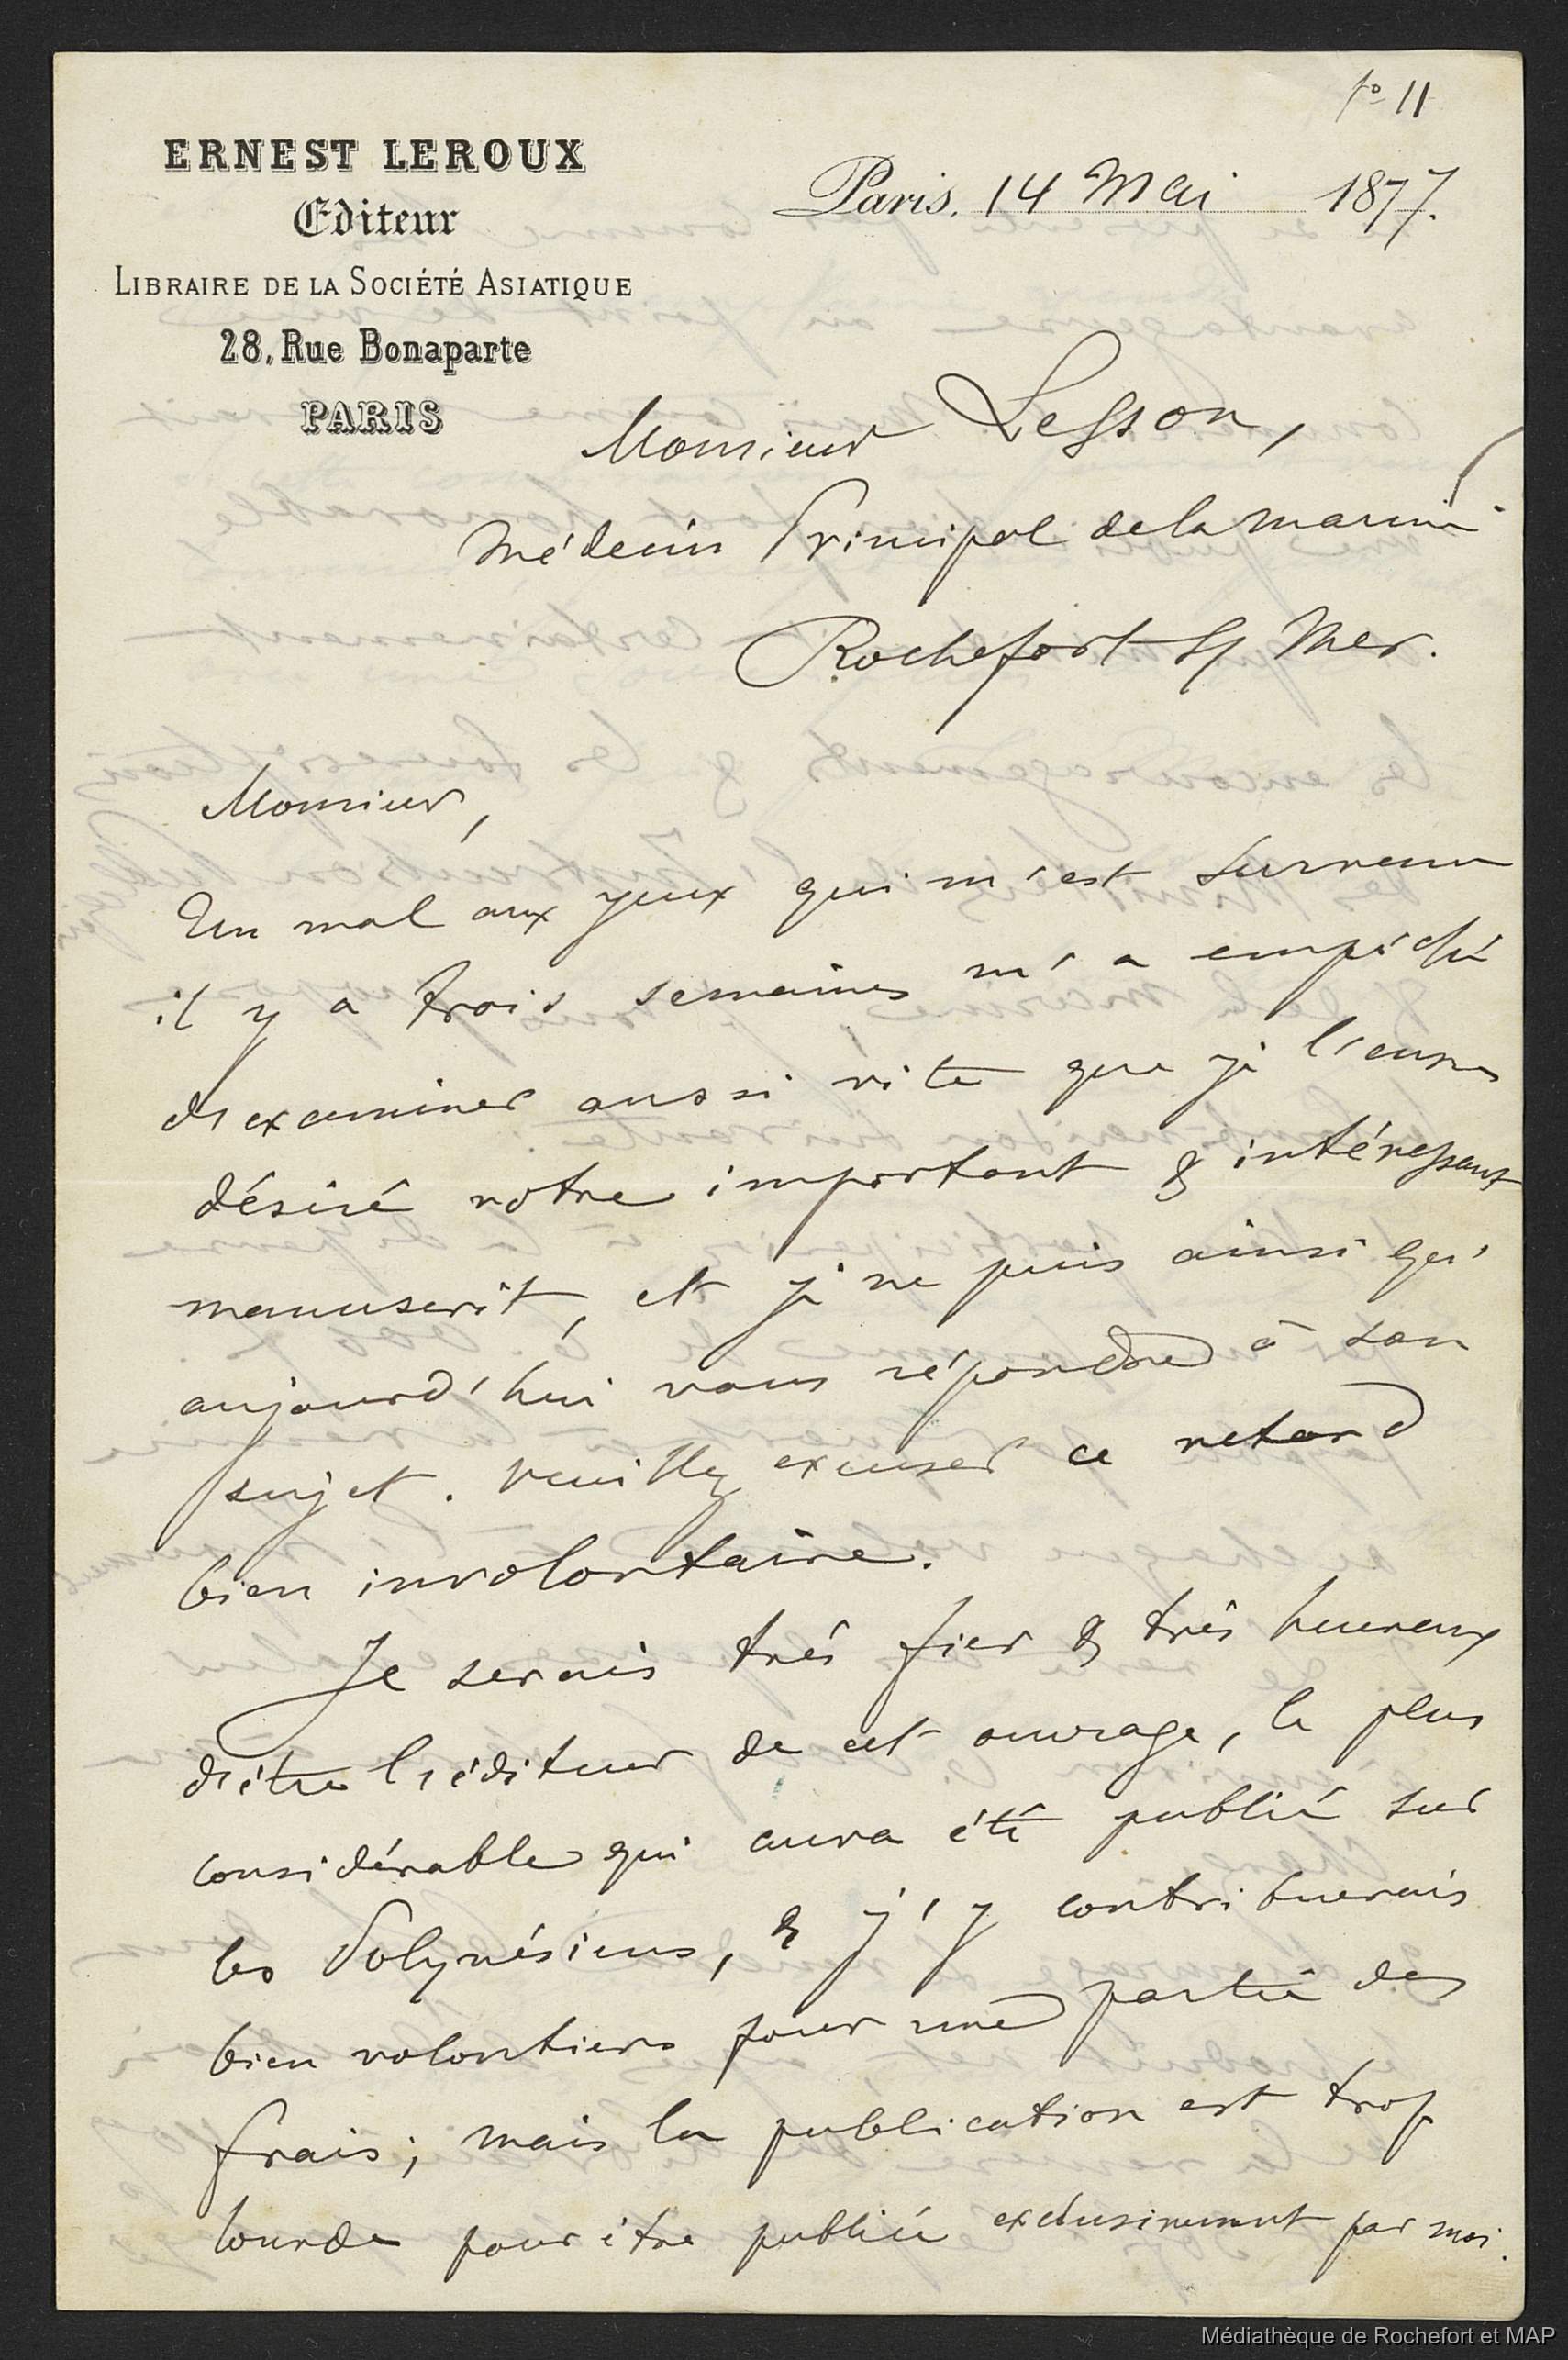 fo 11
ERNEST LEROUX
Editeur
LIBRAIRE DE LA SOCIÉTÉ ASIATIQUE
28, Rue Bonaparte
PARIS
Paris, 14 Mai 1877.
Monsieur Lesson,
Médecin Principal de la marine
Rochefort s/ Mer.
Monsieur,
Un mal aux yeux qui m'est survenu
il y a trois semaines m'a empêché
d'examiner aussi vite que je l'eusse
désiré votre important & intéressant
manuscrit, et je ne puis ainsi qu'
aujourd'hui vous répondre à son
sujet. Veuillez excuser ce retard
bien involontaire.
Je serais très fier & très heureux
d'être l'éditeur de cet ouvrage, le plus
considérable qui aura été publié sur
les Polynésiens, & j'y contribuerais
bien volontiers pour une partie des
frais; mais la publication est trop
lourde pour être publiée exclusivement par moi.
Médiathèque de Rochefort et MAP